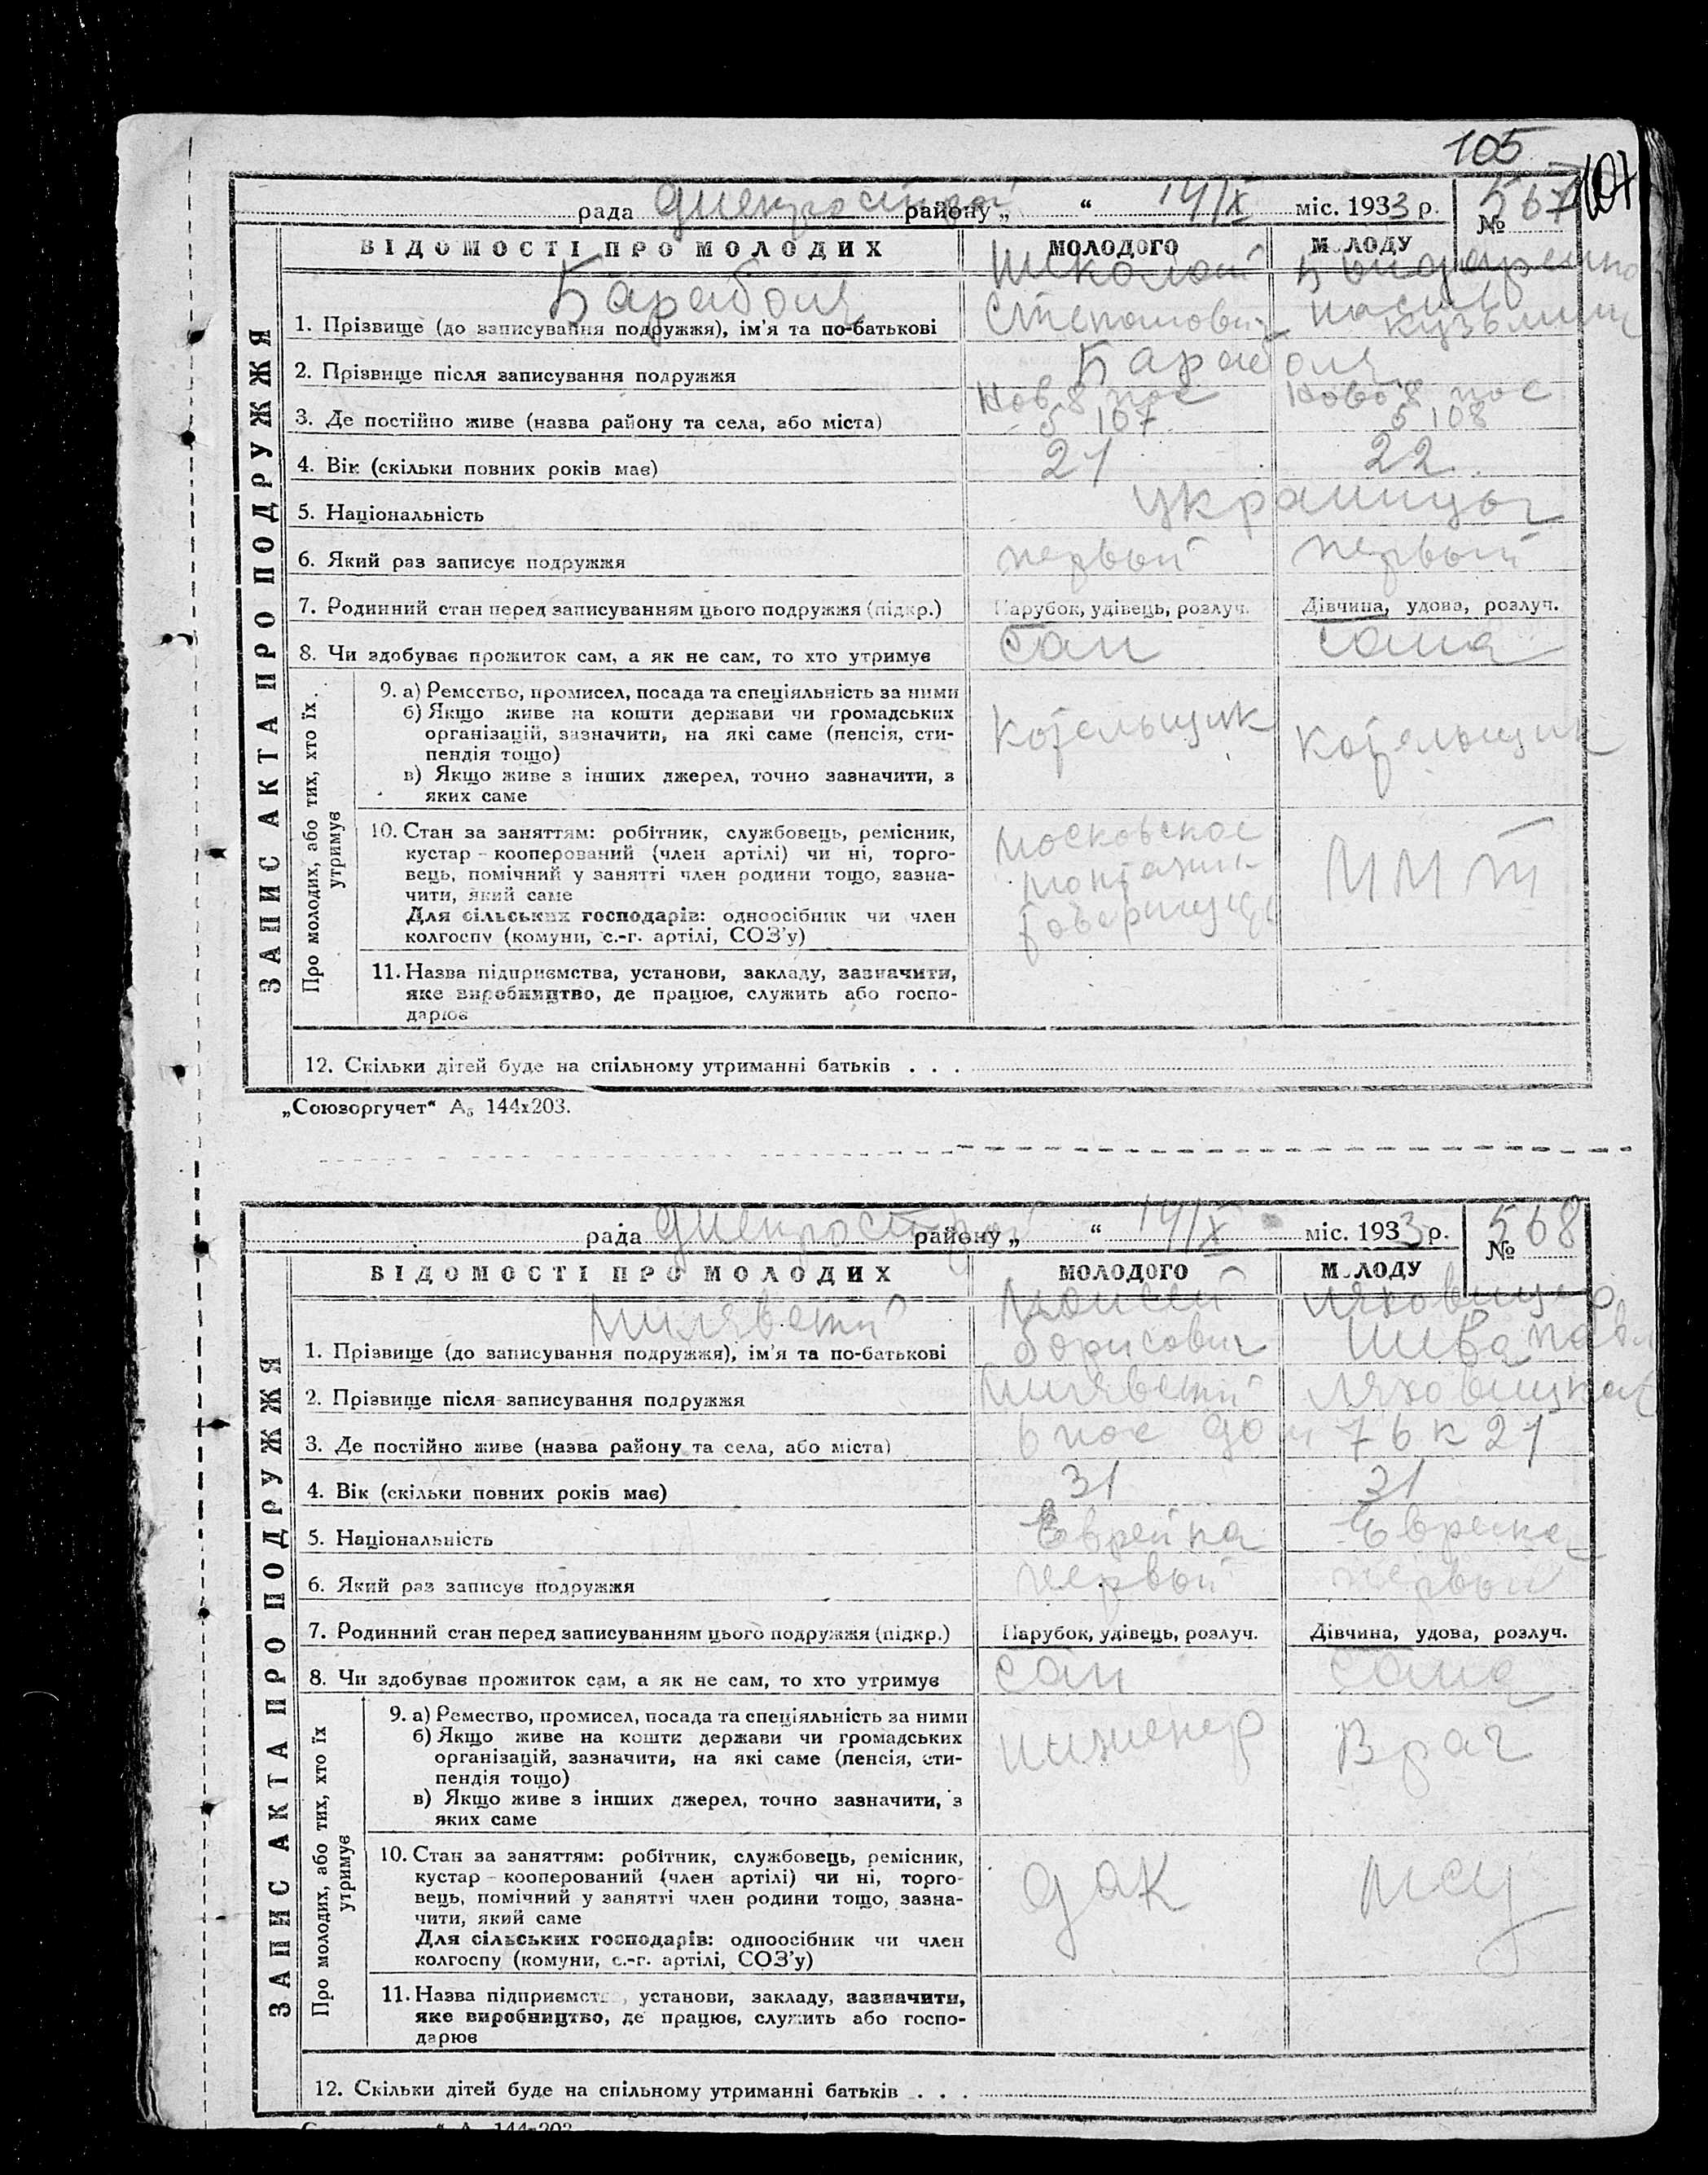 105
107
рада Днепрострой району „ “ 14/IX міс. 1933 р. № 567
ВІДОМОСТІ ПРО МОЛОДИХ МОЛОДОГО М ЛОДУ
ЗАПИС АКТА ПРО ПОДРУЖЖЯ
Карабоня Николай
1. Прізвище (до записування подружжя), ім'я та по-батькові Степанович
2. Прізвище після записування подружжя
3. Де постійно живе (назва району та села, або міста) Нов 8 пос 5 107 Ново 8 пос 5 108
4. Вік (скільки повних років має) 21 22
5. Національність украинцы
6. Який раз записує подружжя первый первый
7. Родинний стан перед записуванням цього подружжя (підкр.) Парубок, удівець, розлуч. Дівчина, удова, розлуч.
8. Чи здобуває прожиток сам, а як не сам, то хто утримує сам сама
Про молодих, або тих, хто їх утримує
9. а) Ремество, промисел, посада та спеціяльність за ними
б) Якщо живе на кошти держави чи громадських
організацій, зазначити, на які саме (пенсія, сти-
пендія тощо)
в) Якщо живе з інших джерел, точно зазначити, з
яких саме
Котельщик Котельщик
10. Стан за заняттям: робітник, службовець, ремісник,
кустар - кооперований (член артілі) чи ні, торго-
вець, помічний у занятті член родини тощо, зазна-
чити, який саме
Для сільських господарів: одноосібник чи член
колгоспу (комуни, с.-г. артілі, СОЗ'у)
Московское ММТ
11. Назва підприємства, установи, закладу, зазначити,
яке виробництво, де працює, служить або госпо-
дарює
12. Скільки дітей буде на спільному утриманні батьків . . .
„Союзоргучет“ А₅ 144х203.
рада Днепрострой району „ “ 14/IX міс. 1933 р. № 568
ВІДОМОСТІ ПРО МОЛОДИХ МОЛОДОГО М ЛОДУ
ЗАПИС АКТА ПРО ПОДРУЖЖЯ
Моисей
1. Прізвище (до записування подружжя), ім'я та по-батькові Борисович
2. Прізвище після записування подружжя Ляховицкая
3. Де постійно живе (назва району та села, або міста) 6 пос дом 76 к 21
4. Вік (скільки повних років має) 31 31
5. Національність Еврейка Еврейка
6. Який раз записує подружжя первый первый
7. Родинний стан перед записуванням цього подружжя (підкр.) Парубок, удівець, розлуч. Дівчина, удова, розлуч.
8. Чи здобуває прожиток сам, а як не сам, то хто утримує сам сама
Про молодих, або тих, хто їх утримує
9. а) Ремество, промисел, посада та спеціяльність за ними
б) Якщо живе на кошти держави чи громадських
організацій, зазначити, на які саме (пенсія, сти-
пендія тощо)
в) Якщо живе з інших джерел, точно зазначити, з
яких саме
инженер Врач
10. Стан за заняттям: робітник, службовець, ремісник,
кустар - кооперований (член артілі) чи ні, торго-
вець, помічний у занятті член родини тощо, зазна-
чити, який саме
Для сільських господарів: одноосібник чи член
колгоспу (комуни, с.-г. артілі, СОЗ'у)
ДАК МСУ
11. Назва підприємст , установи, закладу, зазначити,
яке виробництво, де працює, служить або госпо-
дарює
12. Скільки дітей буде на спільному утриманні батьків . . .